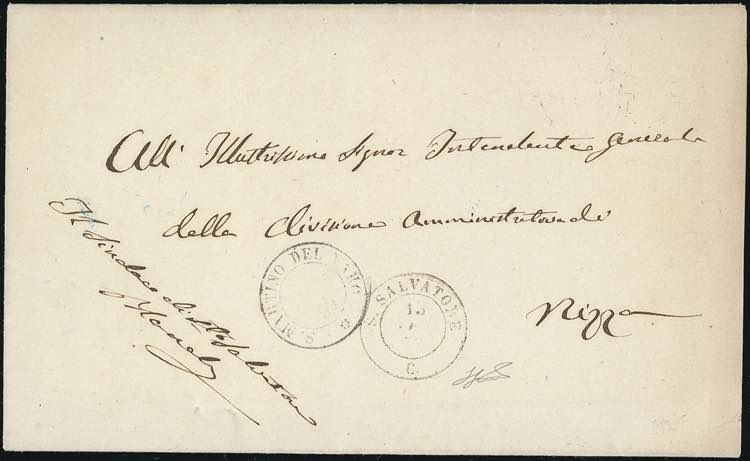 All' Illustrissimo Signor Intendente Generale
della Divisione Amministrativa di
Nizza
Il Sindaco di
S. MARTINO DEL VARO
S. SALVATORE
13
C.